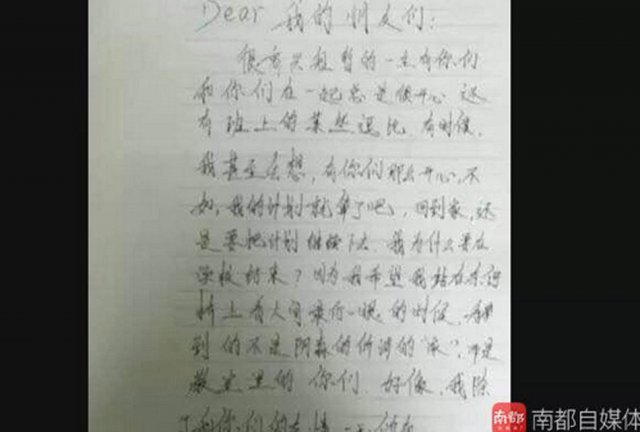 Dear 我的朋友们：
很高兴短暂的一生有你们
和你们在一起总是很开心 还
有班上的某些逗比 有时候，
我甚至会想，有你们那么开心，不
如，我的计划就算了吧，回到家，还
是要把计划继续下去 我为什么要在
学校结束？因为我希望我站在
桥上看人间最后一晚的时候，看
到的不是阴森的 的"家"，而是
教室里的你们 好像，我除
了和你们的友情
南都
南都自媒体